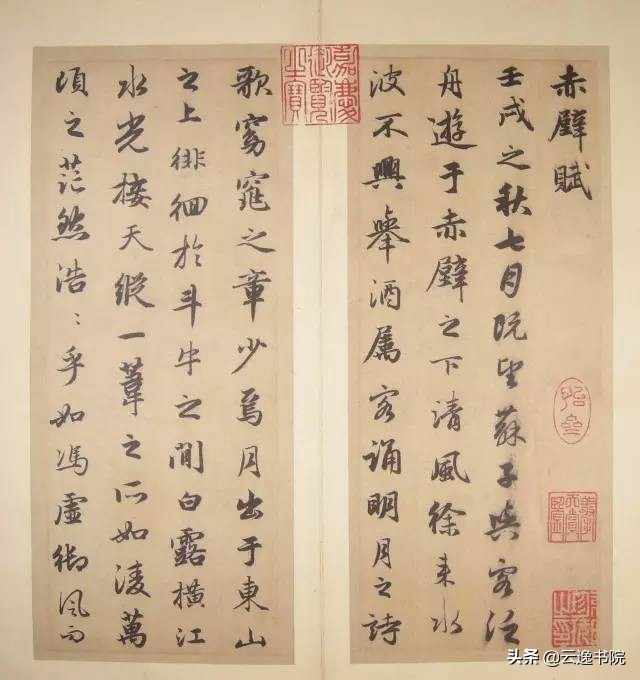 赤壁賦
壬戌之秋七月既望蘇子與客泛
舟遊于赤壁之下清風徐来水
波不興舉酒属客誦明月之詩
歌窈窕之章少焉月出于東山
之上徘徊於斗牛之間白露橫江
水光接天縱一葦之所如凌萬
頃之茫然浩〻乎如馮虛御風而
嘉慶御覽之寶
头条 @云逸书院